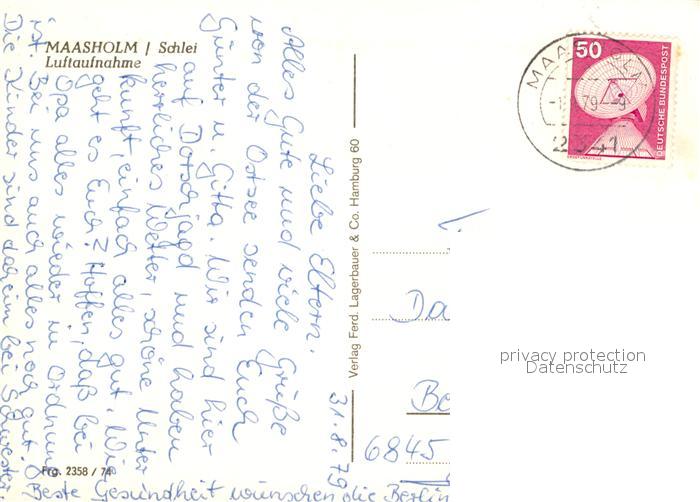 MAASHOLM / Schlei
Luftaufnahme
31.8.79
Liebe Eltern.
Alles Gute und viele Grüße
von der Ostsee senden Euch
Günter u. Gitta. Wir sind hier
auf Dorschjagd und haben
herrliches Wetter, schöne Unter
kunft, einfach alles gut. Wie
geht es Euch? Hoffen, daß bei
Opa alles wieder in Ordnung
ist. Bei uns auch alles noch gut.
Die Kinder sind daheim bei Schwester
Beste Gesundheit wünschen die Berlin
Frg. 2358 / 74
Verlag Ferd. Lagerbauer & Co. Hamburg 60
50
DEUTSCHE BUNDESPOST
MAA
79-9
2341
Da
Be
6845
privacy protection
Datenschutz